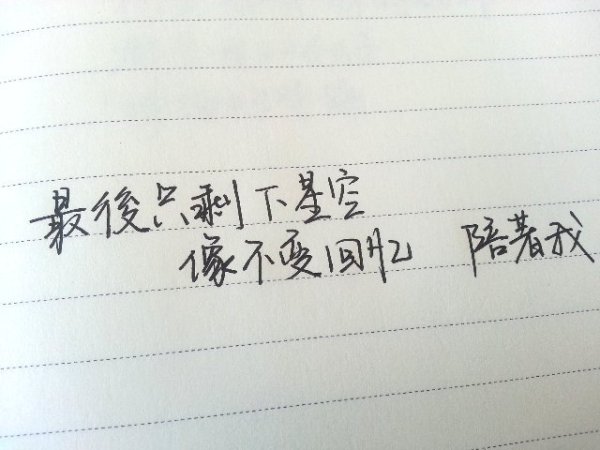 最後只剩下星空
像不变回忆 陪著我